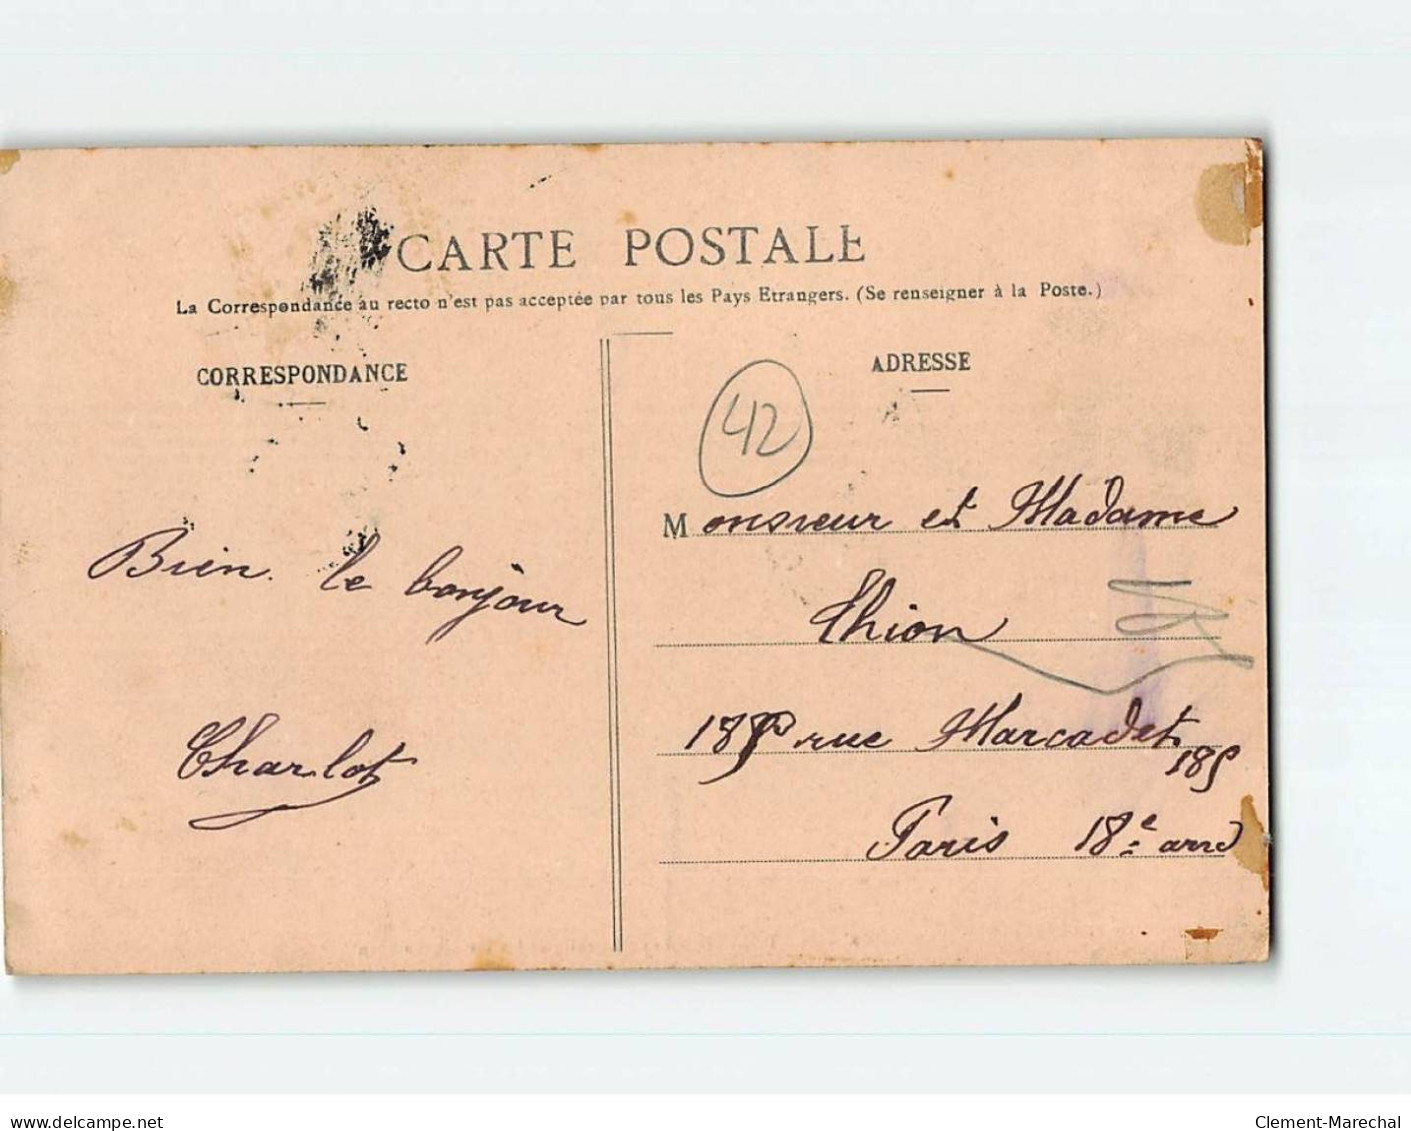 CARTE POSTALE
La Correspondance au recto n'est pas acceptée par tous les Pays Etrangers. (Se renseigner à la Poste.)
CORRESPONDANCE
Bien le bonjour
Charlot
ADRESSE
42
Monsieur et Madame
Thion
rue Marcadet
185
Paris 18e arrd
delcampe.net
Clement-Marechal